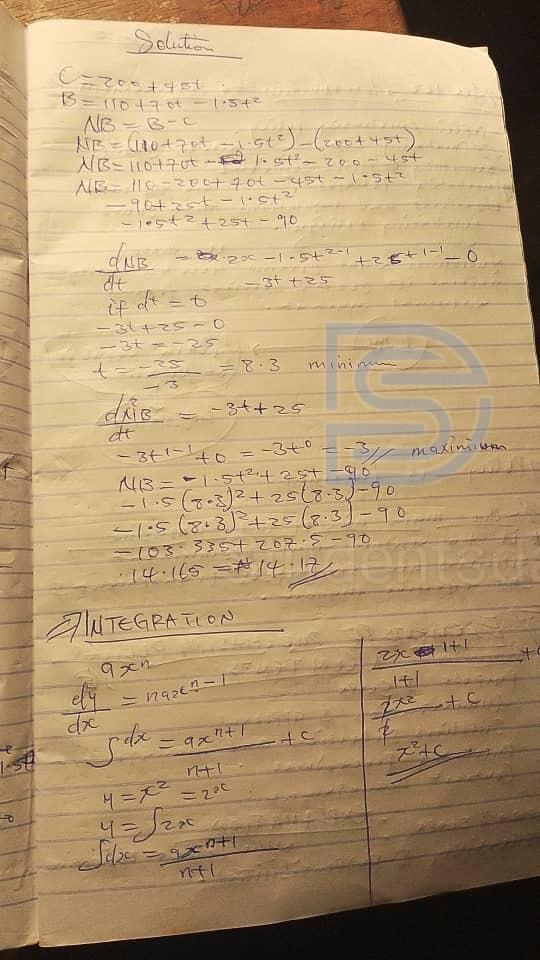 Solution
C = 200 + 45t
B = 110 + 70t - 1.5t²
NB = B - C
NB = (110 + 70t - 1.5t²) - (200 + 45t)
NB = 110 + 70t - 1.5t² - 200 - 45t
NB = 110 - 200 + 70t - 45t - 1.5t²
- 90 + 25t - 1.5t²
- 1.5t² + 25t - 90
dNB/dt = 2x - 1.5t²⁻¹ + 25t¹⁻¹ - 0
- 3t + 25
if dt = 0
- 3t + 25 - 0
- 3t = - 25
t = -25/-3 = 8.3 minimum
d²NB/dt = - 3t + 25
- 3t¹⁻¹ + 0 = - 3t⁰ = - 3 // maximum
NB = - 1.5t² + 25t - 90
- 1.5(8.3)² + 25(8.3) - 90
- 1.5(8.3)² + 25(8.3) - 90
- 103.335 + 207.5 - 90
14.165 = ₦14.17
INTEGRATION
axⁿ
dy/dx = naxⁿ⁻¹
∫dx = axⁿ⁺¹/n+1 + c
y = x² = 2x
y = ∫2x
∫dx = axⁿ⁺¹/n+1
2x¹⁺¹/1+1 + c
2x²/2 + c
x² + c